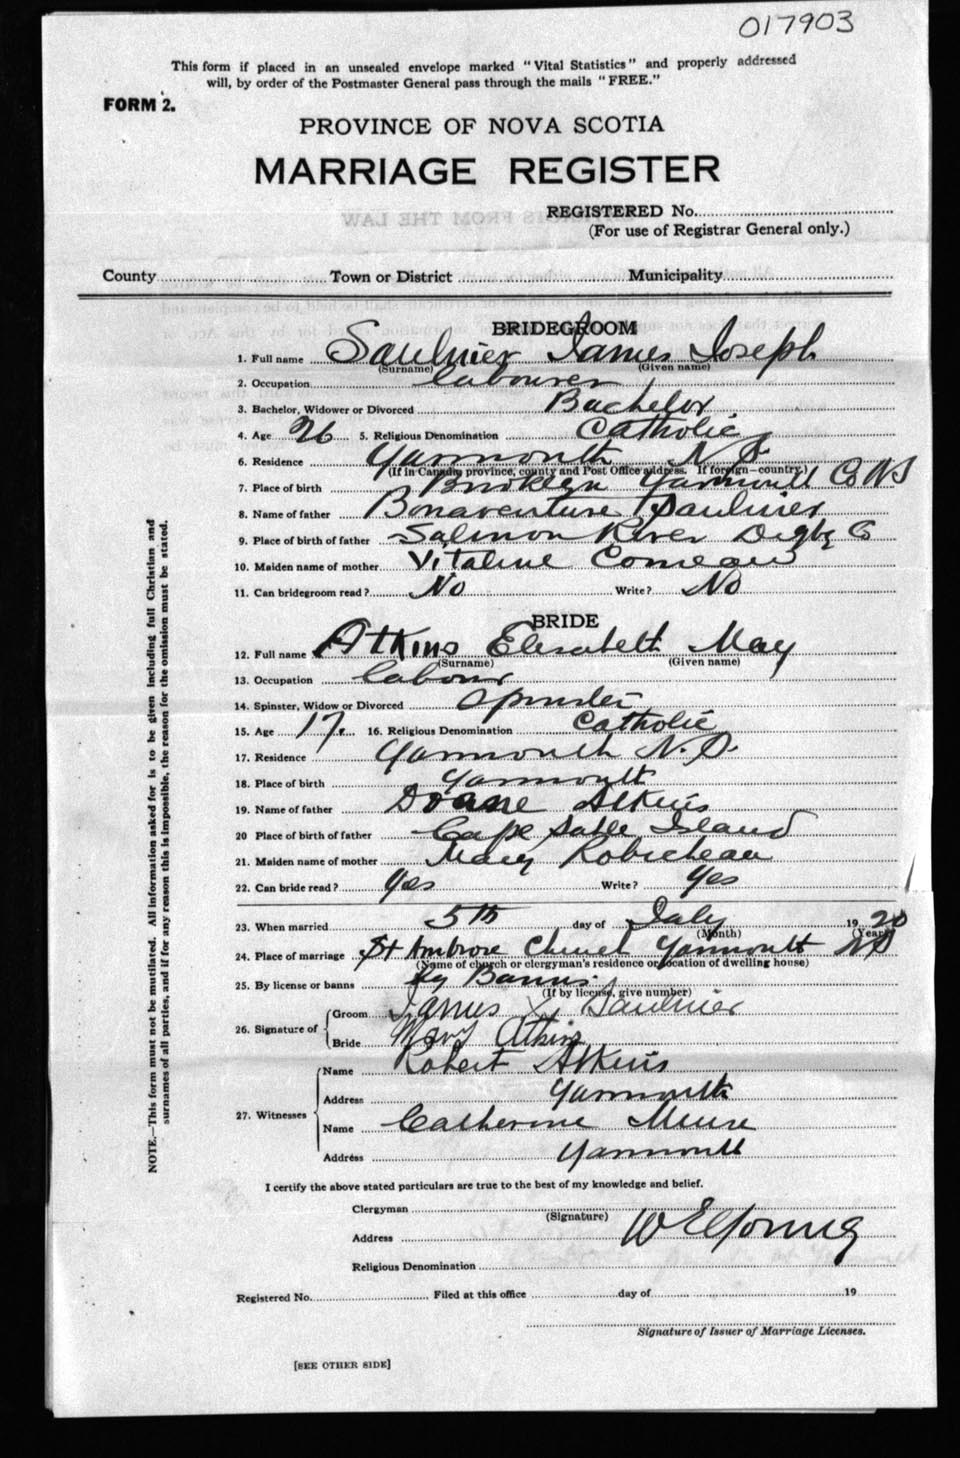 017903
This form if placed in an unsealed envelope marked "Vital Statistics" and properly addressed
will, by order of the Postmaster General pass through the mails "FREE."
FORM 2.
PROVINCE OF NOVA SCOTIA
MARRIAGE REGISTER
REGISTERED No.
(For use of Registrar General only.)
County Town or District Municipality
BRIDEGROOM
1. Full name Saulnier James Joseph
(Surname) (Given name)
2. Occupation labourer
3. Bachelor, Widower or Divorced Bachelor
4. Age 26 5. Religious Denomination Catholic
6. Residence Yarmouth N.S.
(If in Canada province, county and Post Office address. If foreign—country.)
7. Place of birth Brooklyn Yarmouth Co NS
8. Name of father Bonaventure Saulnier
9. Place of birth of father Salmon River Digby Co
10. Maiden name of mother Vitaline Comeau
11. Can bridegroom read? No Write? No
BRIDE
12. Full name Atkins Elisabeth May
(Surname) (Given name)
13. Occupation labour
14. Spinster, Widow or Divorced Spinster
15. Age 17. 16. Religious Denomination Catholic
17. Residence Yarmouth N.S.
18. Place of birth Yarmouth
19. Name of father Doane Atkins
20 Place of birth of father Cape Sable Island
21. Maiden name of mother Mary Robicheau
22. Can bride read? Yes Write? Yes
23. When married 5th day of July 1920
(Month) (Year)
24. Place of marriage St Ambrose Church Yarmouth NS
(Name of church or clergyman's residence or location of dwelling house)
25. By license or banns by Banns
(If by license, give number)
26. Signature of Groom James X Saulnier
Bride Mary Atkins
27. Witnesses Name Robert Atkins
Address Yarmouth
Name Catherine Meuse
Address Yarmouth
I certify the above stated particulars are true to the best of my knowledge and belief.
Clergyman
(Signature) W E Young
Address
Religious Denomination
Registered No. Filed at this office day of 19
Signature of Issuer of Marriage Licenses.
[SEE OTHER SIDE]
NOTE.—This form must not be mutilated. All information asked for is to be given including full Christian and
surnames of all parties, and if for any reason this is impossible, the reason for the omission must be stated.